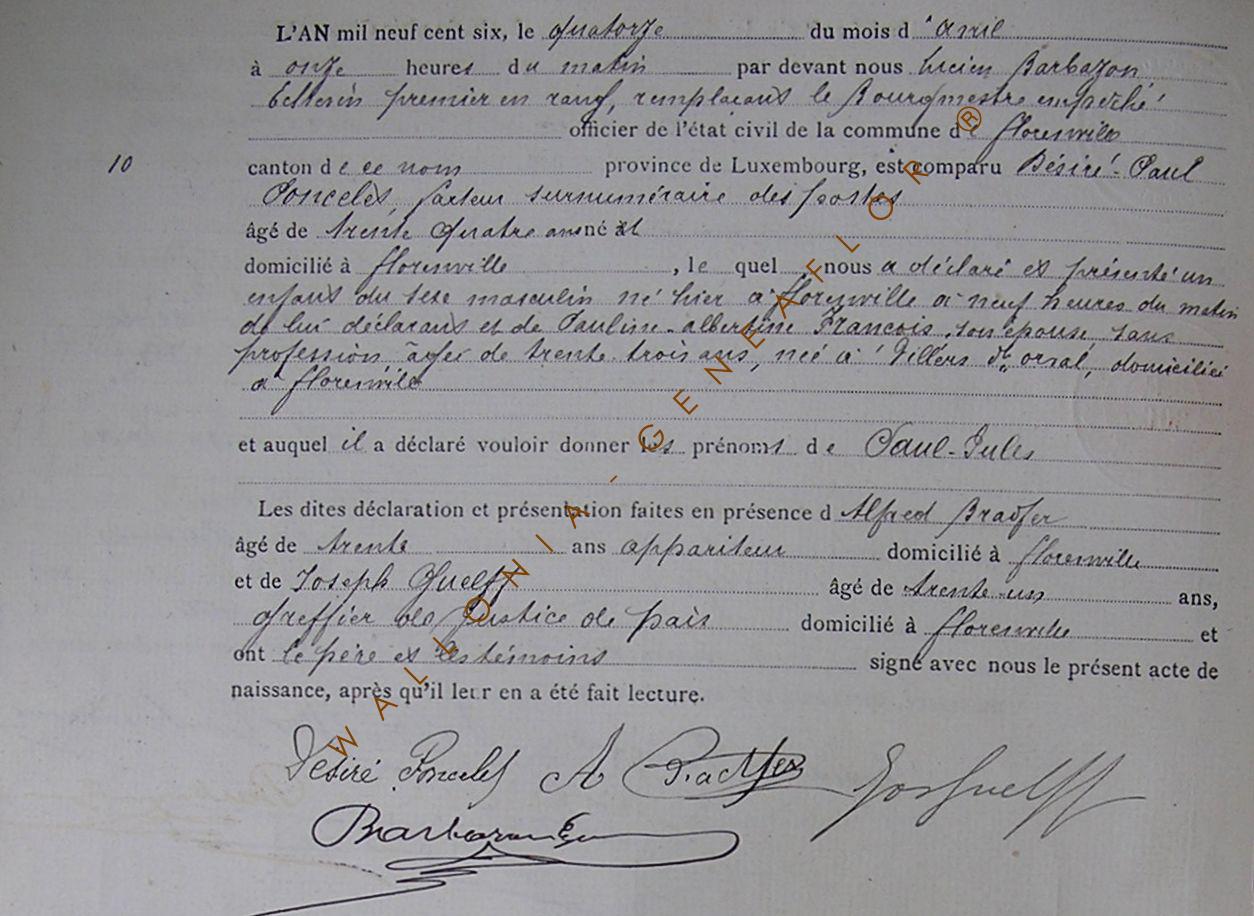 L'AN mil neuf cent six, le quatorze du mois d'avril
à onze heures du matin par devant nous Lucien Barbazon
Echevin premier en rang, remplaçant le Bourgmestre empêché
officier de l'état civil de la commune de florenville
10 canton de ce nom province de Luxembourg, est comparu Désiré-Paul
Poncelet, facteur surnuméraire des postes
âgé de trente quatre ans né et
domicilié à florenville, le quel nous a déclaré et présenté un
enfant du sexe masculin né hier à florenville à neuf heures du matin
de lui déclarant et de Pauline-albertine François son épouse sans
profession âgée de trente trois ans, née à Villers dt orval, domiciliée
à florenville
et auquel il a déclaré vouloir donner les prénoms de Paul-Jules
Les dites déclaration et présentation faites en présence d Alfred Bradfer
âgé de trente ans appariteur domicilié à florenville
et de Joseph Guelff âgé de trente un ans,
greffier de Justice de paix domicilié à florenville et
ont le père et les témoins signé avec nous le présent acte de
naissance, après qu'il leur en a été fait lecture.
Désiré Poncelet A Bradfer Jos Guelff
Barbazon
WALLONIA-GENEAFLOR ®